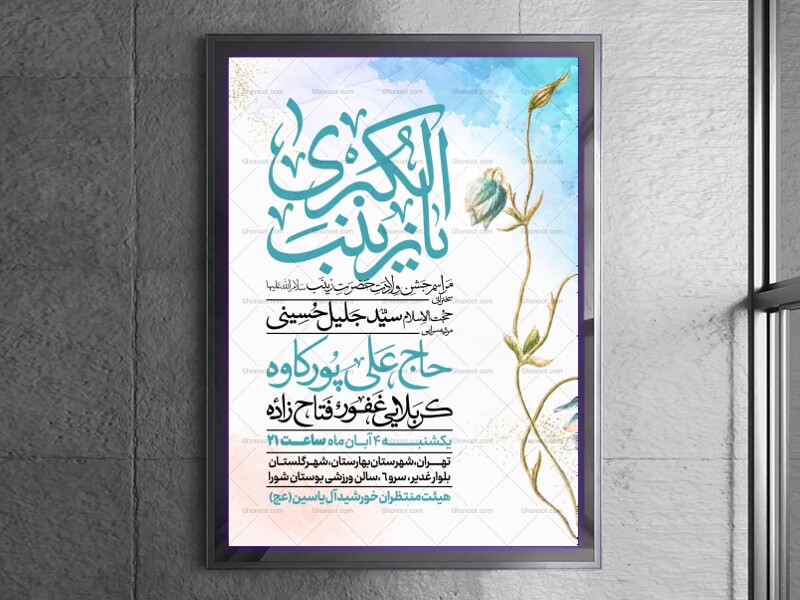 یا زینب الکبری
مراسم جشن ولادت حضرت زینب سلام الله علیها
سخنرانی
حجت الاسلام سید جلیل حسینی
مرثیه سرایی
حاج علی پورکاوه
کربلایی غفور فتاح زاده
یکشنبه ۴ آبان ماه ساعت ۲۱
تهران، شهرستان بهارستان، شهر گلستان
بلوار غدیر، سرو ٦، سالن ورزشی بوستان شورا
هیئت منتظران خورشید آل یاسین (عج)
Ghonoot.com